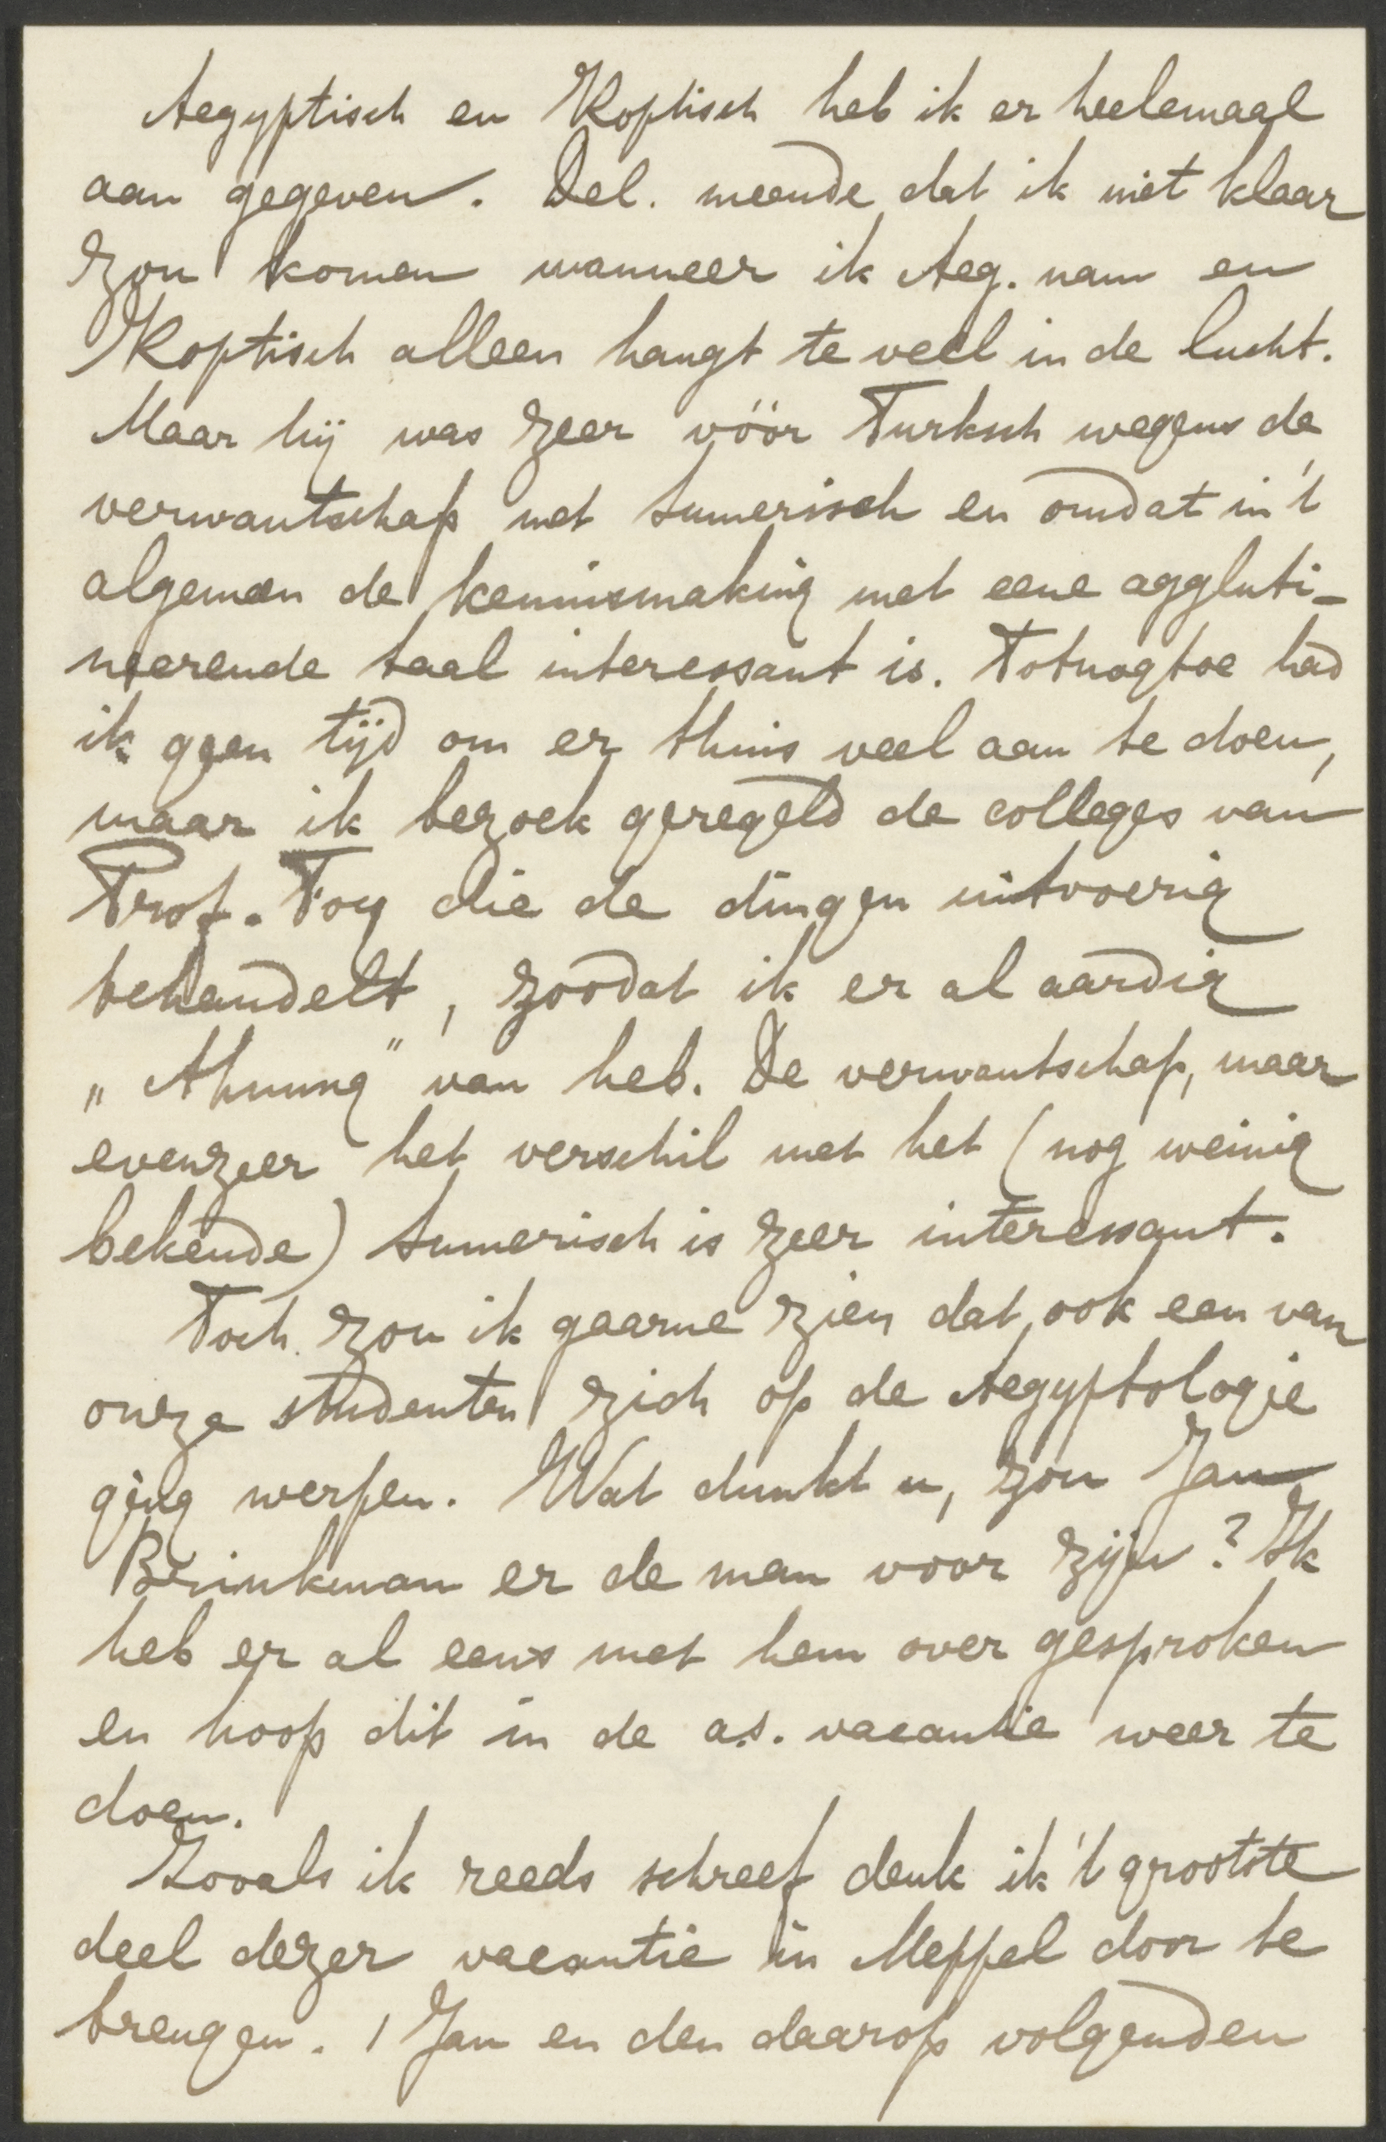 Aegyptisch en Koptisch heb ik er heelemaal
aan gegeven. Del. meende dat ik niet klaar
zou komen wanneer ik Aeg. nam en
Koptisch alleen hangt te veel in de lucht.
Maar hij was zeer vóór Turksch wegens de
verwantschap met Sumerisch en omdat in 't
algemeen de kennismaking met eene aggluti-
neerende taal interessant is. Totnogtoe had
ik geen tijd om er thuis veel aan te doen,
maar ik bezoek geregeld de colleges van
Prof. Foy die de dingen uitvoerig
behandelt, zoodat ik er al aardig
„Ahnung" van heb. De verwantschap, maar
evenzeer het verschil met het (nog weinig
bekende) Sumerisch is zeer interessant.
Toch zou ik gaarne zien dat ook een van
onze studenten zich op de Aegyptologie
ging werpen. Wat dunkt u, zou Jan
Brinkman er de man voor zijn? Ik
heb er al eens met hem over gesproken
en hoop dit in de a.s. vacantie weer te
doen.
Zooals ik reeds schreef denk ik 't grootste
deel dezer vacantie in Meppel door te
brengen. 1 Jan en den daarop volgenden